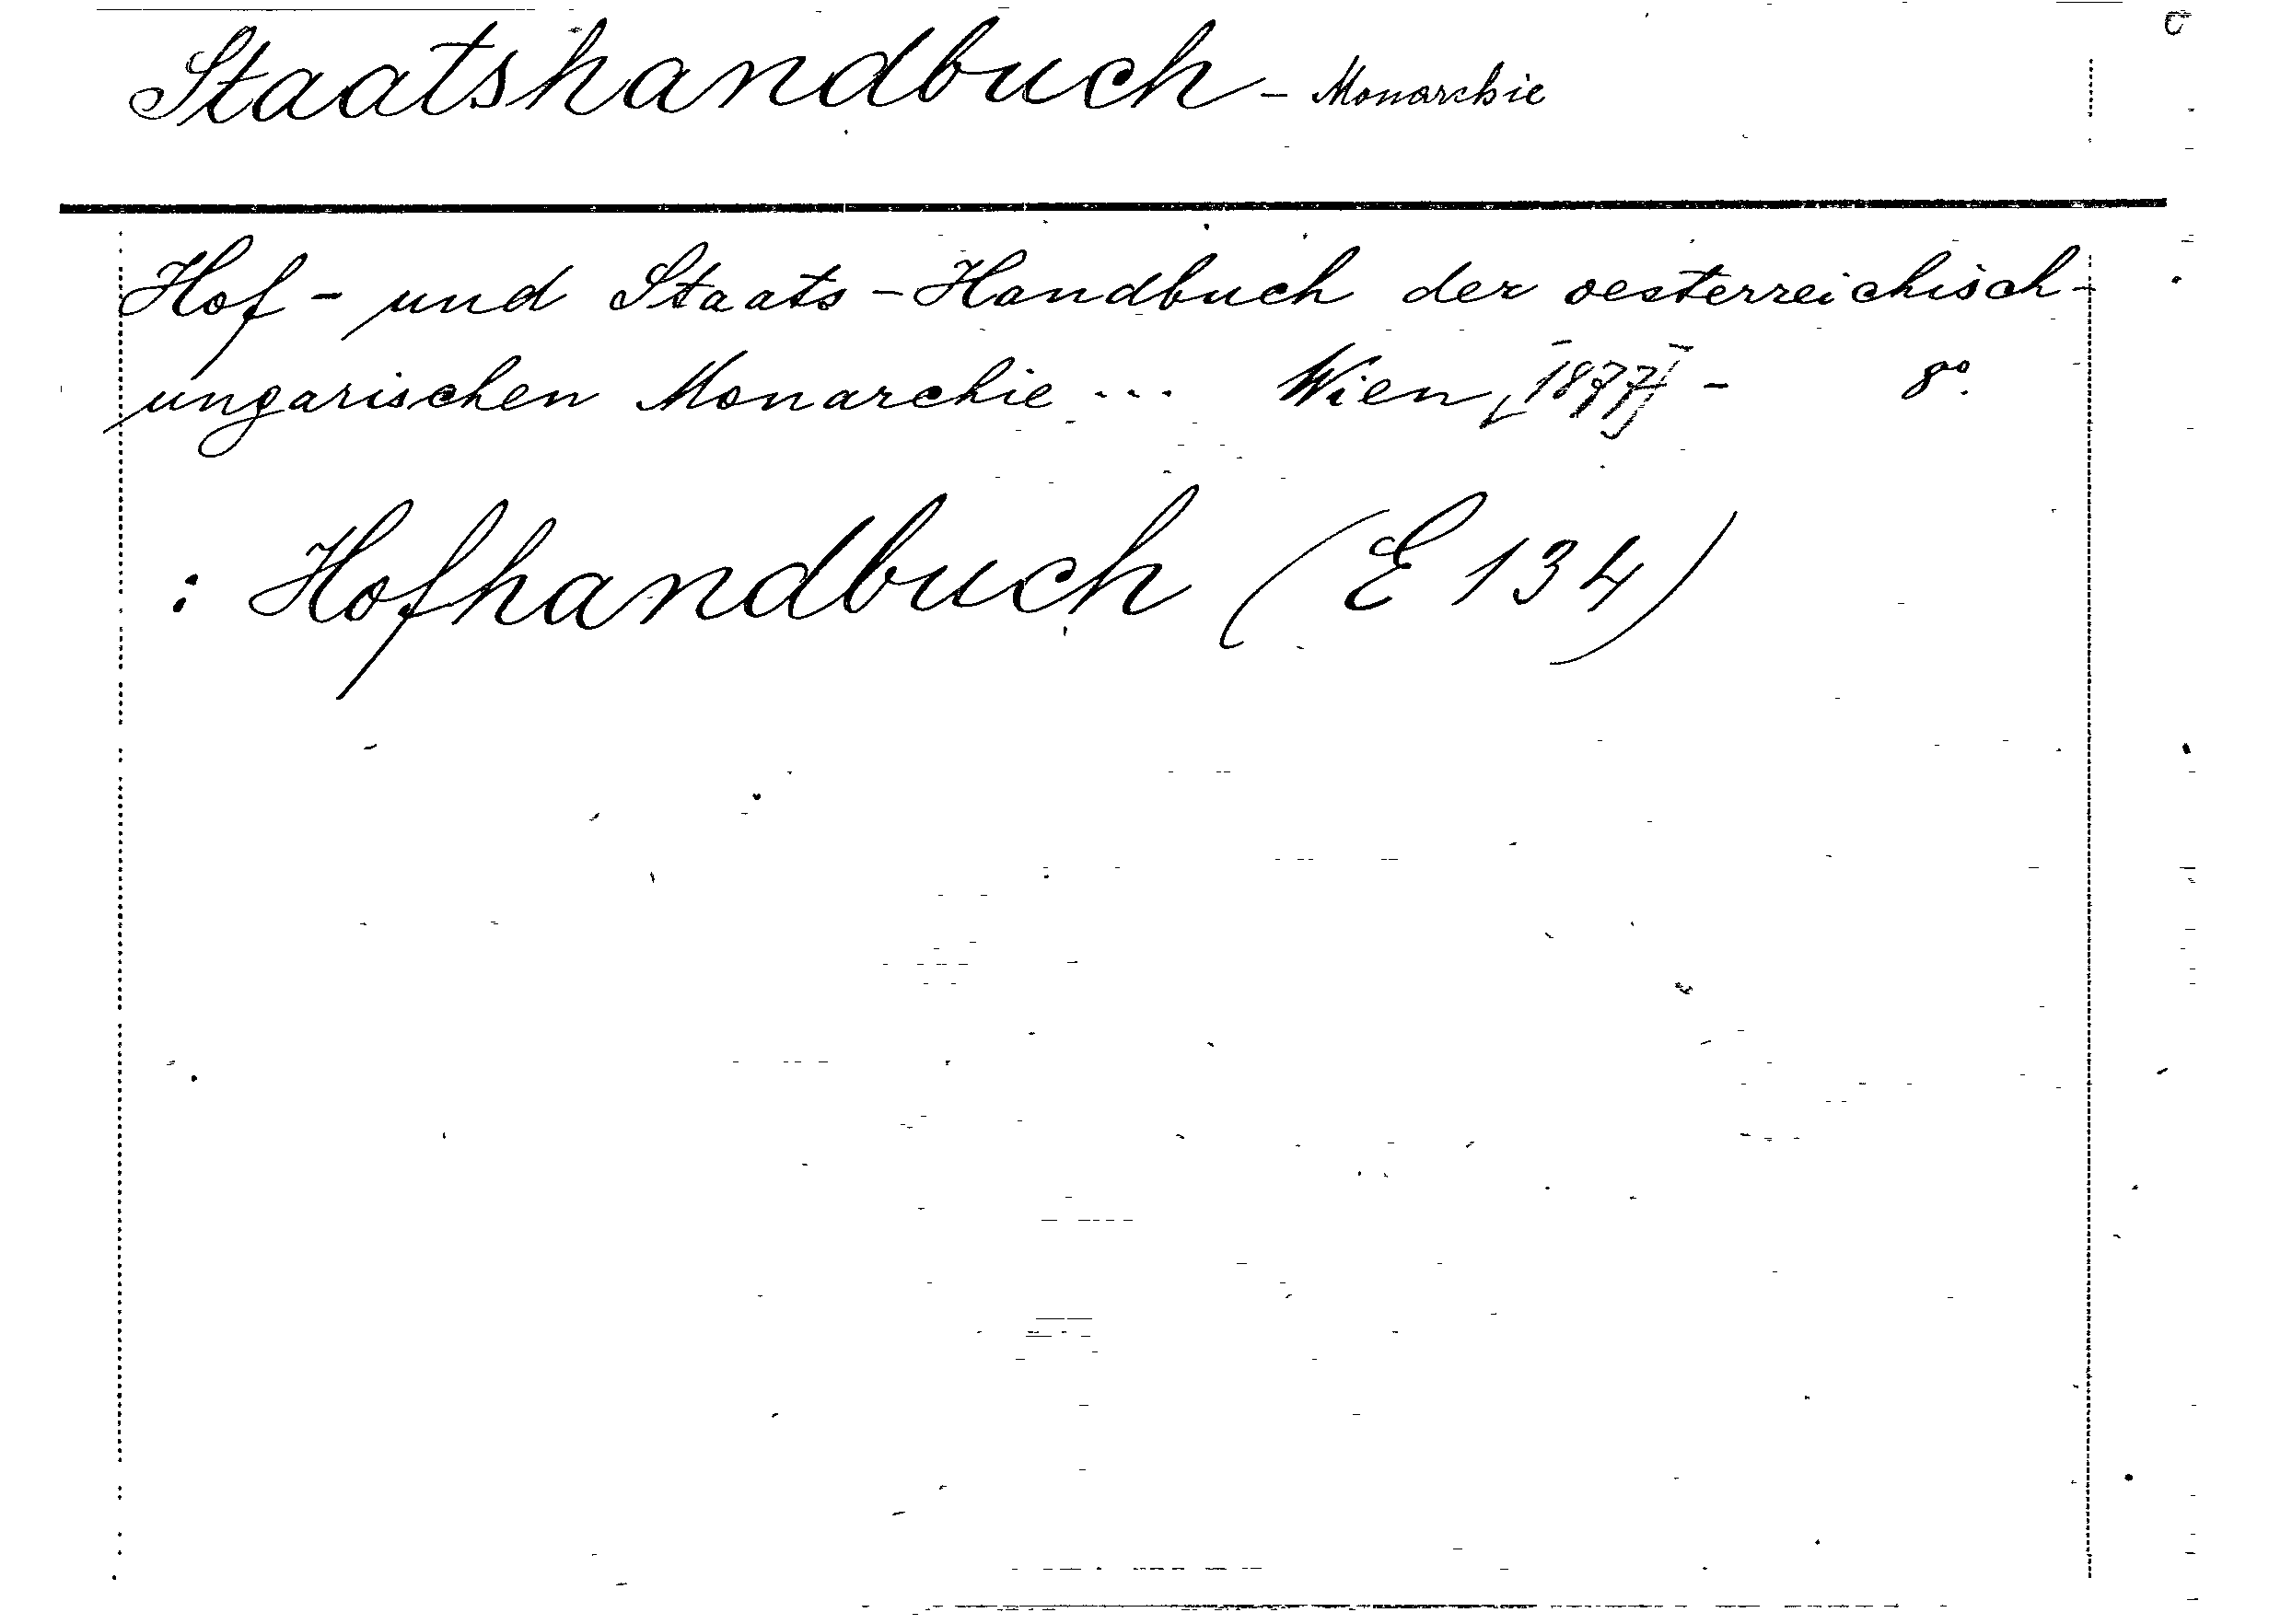 Staatshandbuch - Monarchie
Hof- und Staats-Handbuch der oesterreichisch-
ungarischen Monarchie ... Wien [1877] - 8°.
: Hofhandbuch (E 134)